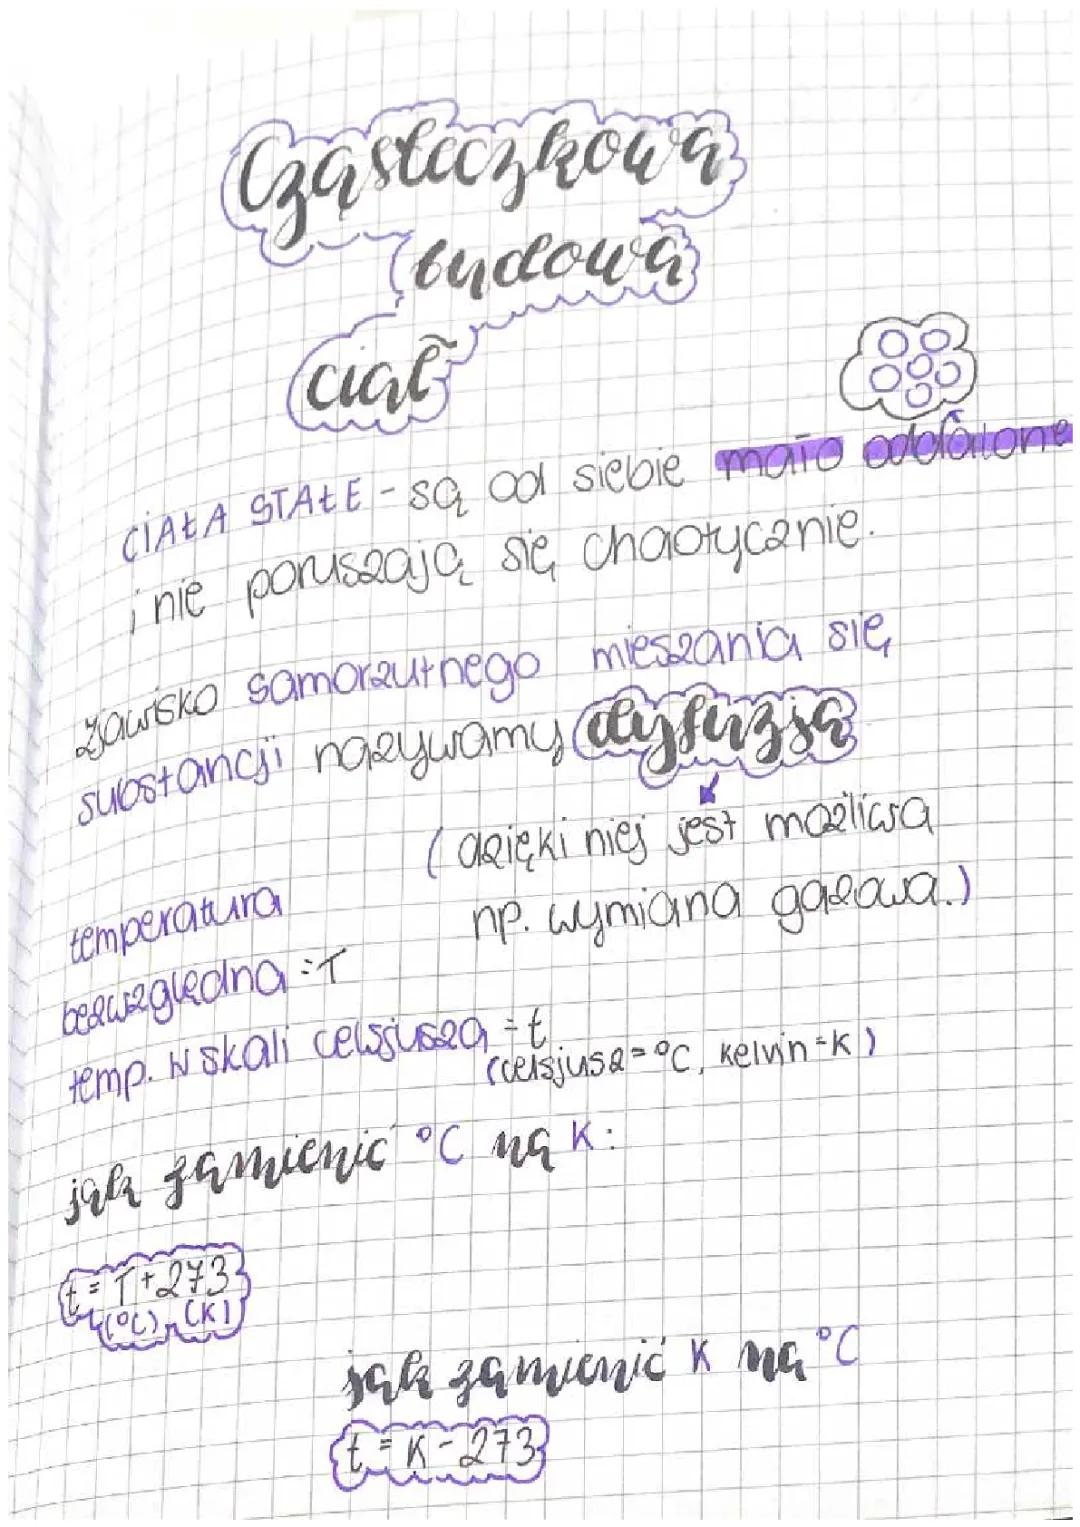 Cząsteczkowa
budowa
ciał
CIAŁA STAŁE - są od siebie mało oddalone
i nie poruszają się chaotycznie.
Zjawisko samorzutnego mieszania się
substancji nazywamy dyfuzją
(dzięki niej jest możliwa
np. wymiana gazowa.)
temperatura
bezwzględna = T
temp. w skali celsjusza = t
(celsjusz = °C, kelvin = K)
jak zamienić °C na K:
t = T + 273
(°C) (K)
jak zamienić K na °C
t = K - 273